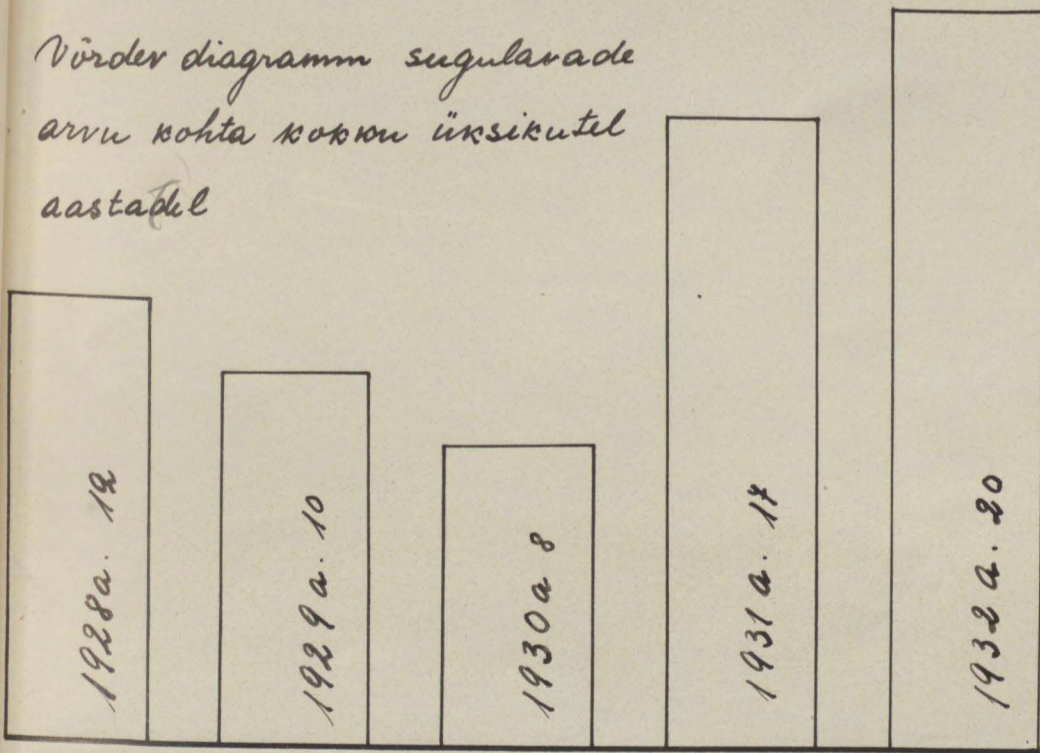 Võrdev diagramm sugulavade
arvu kohta kokku üksikutel
aastadel
1928a. 12
1929a. 10
1930a 8
1931a. 17
1932a. 20